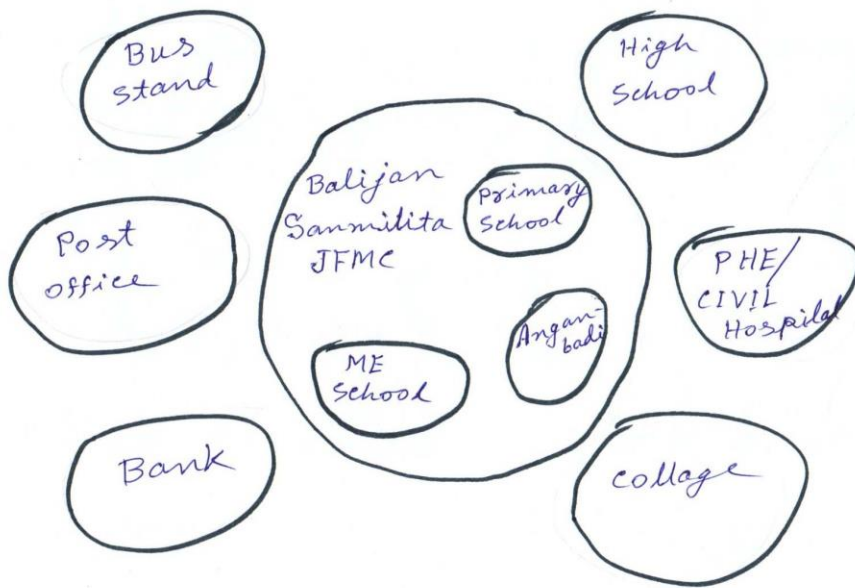 Bus
stand
High
School
Balijan
Sanmilita
JFMC
Primary
School
Post
office
PHE/
CIVIL
Hospilal
Angan-
badi
ME
School
Bank
Collage